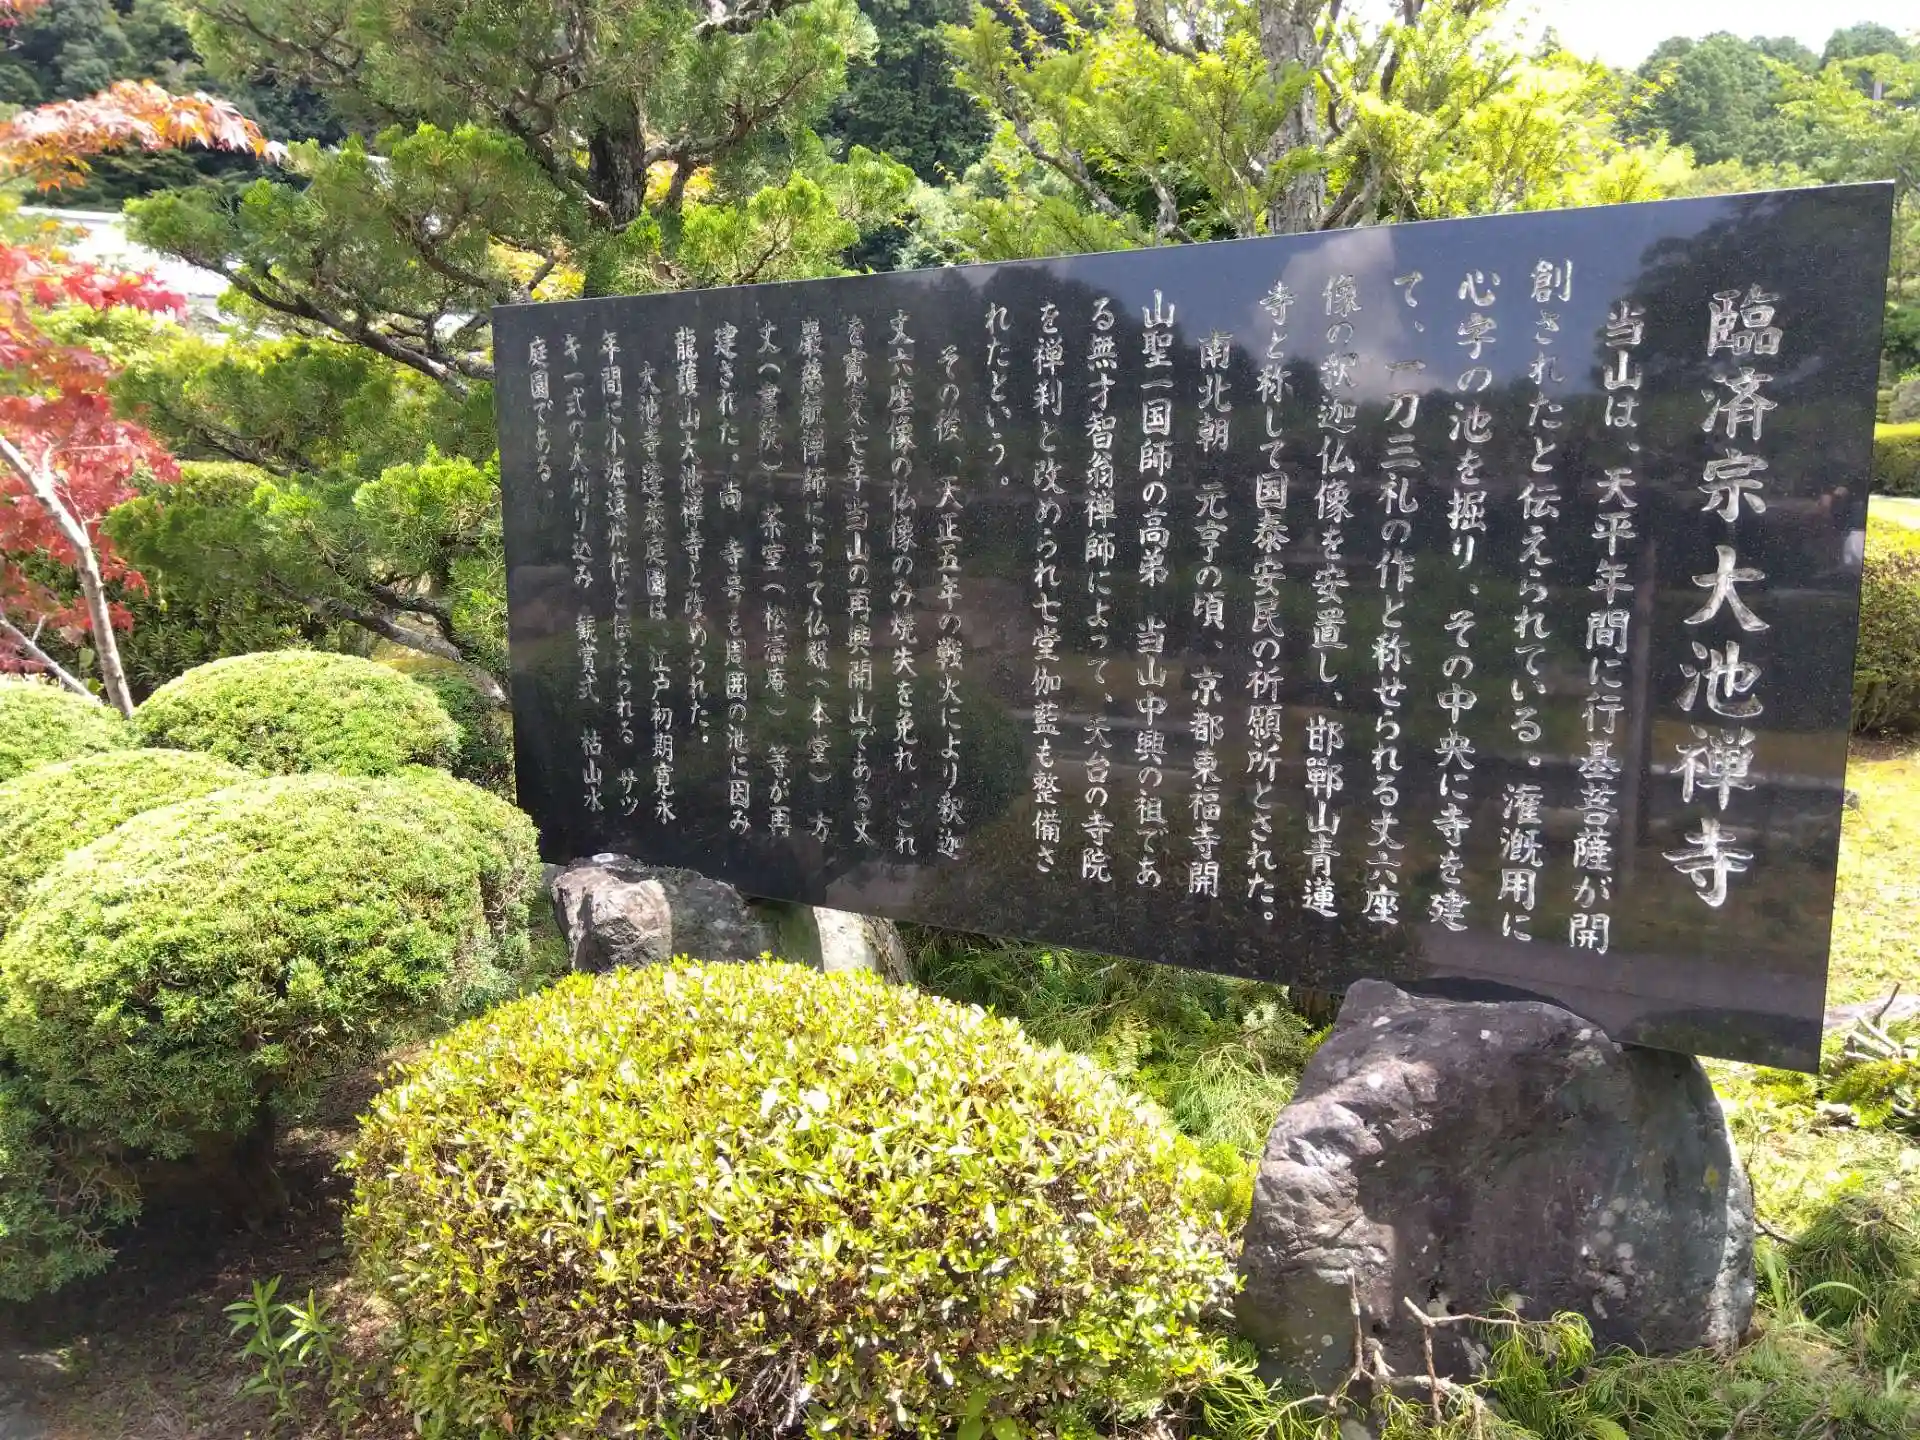 臨済宗大池禅寺
当山は、天平年間に行基菩薩が開
創されたと伝えられている。潅漑用に
心字の池を掘り、その中央に寺を建
て、一刀三礼の作と称せられる丈六座
像の釈迦仏像を安置し、邯鄲山青蓮
寺と称して国泰安民の祈願所とされた。
南北朝 元亨の頃、京都東福寺開
山聖一国師の高弟 当山中興の祖であ
る無才智翁禅師によって、天台の寺院
を禅刹と改められ七堂伽藍も整備さ
れたという。
その後、天正五年の戦火により釈迦
丈六座像の仏像のみ焼失を免れ、これ
を寛文七年当山の再興開山である丈
巖慈航禅師によって仏殿(本堂) 方
丈(書院) 茶室(松濤庵) 等が再
建された。尚 寺号も周囲の池に因み
龍護山大池禅寺と改められた。
大池寺蓬莱庭園は、江戸初期寛永
年間に小堀遠州作と伝えられる サツ
キ一式の大刈り込み 観賞式 枯山水
庭園である。